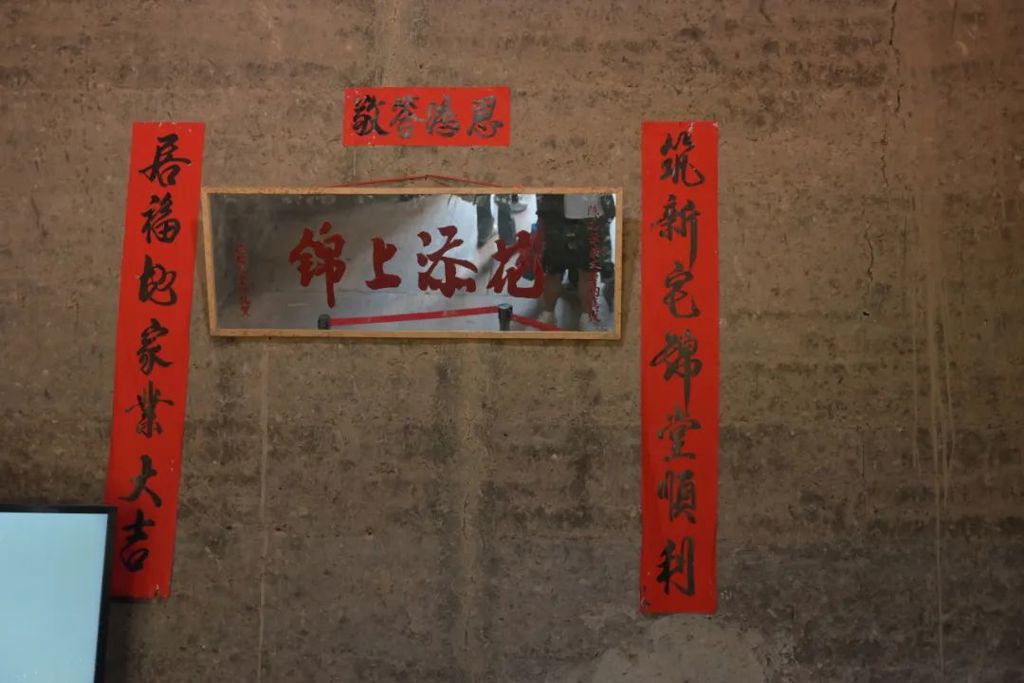 敬答鸿恩
筑新宅锦堂順利
居福地家業大吉
锦上添花